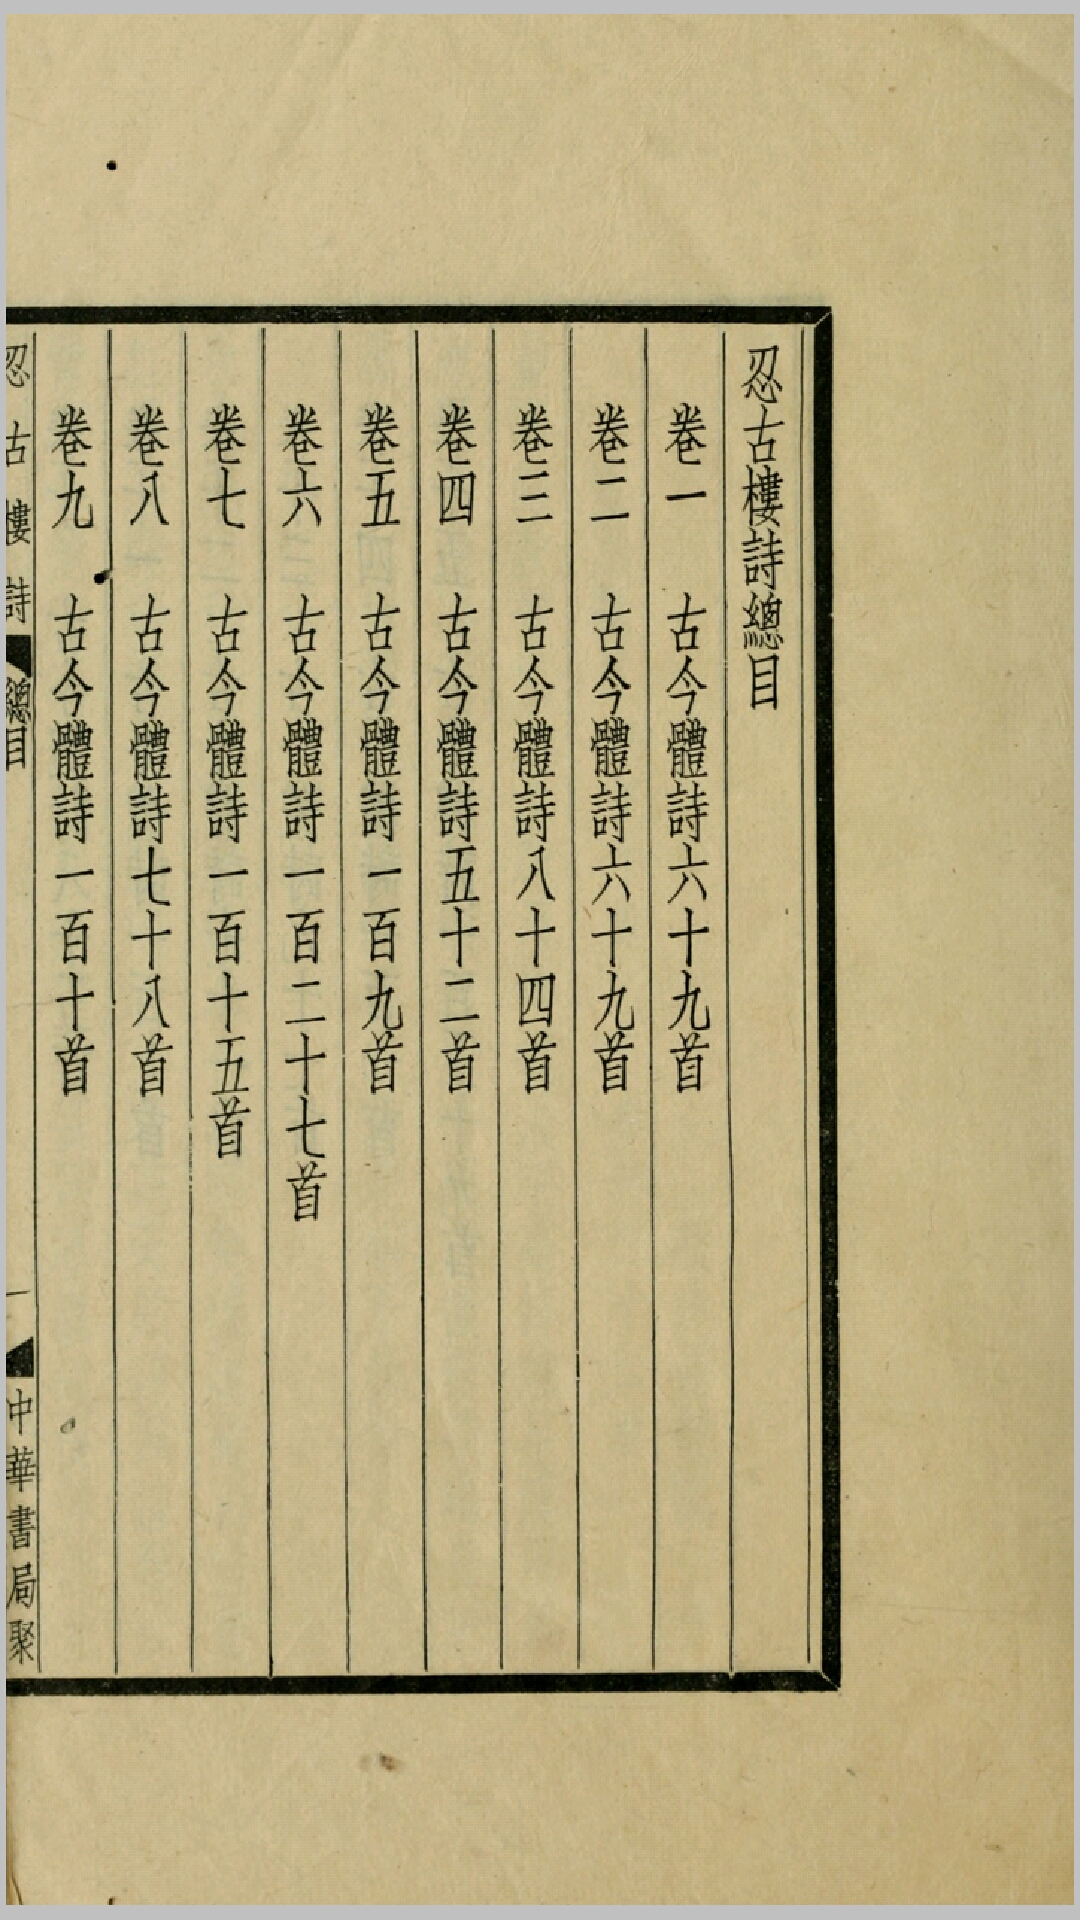 忍古樓詩總目
卷一　古今體詩六十九首
卷二　古今體詩六十九首
卷三　古今體詩八十四首
卷四　古今體詩五十二首
卷五　古今體詩一百九首
卷六　古今體詩一百二十七首
卷七　古今體詩一百十五首
卷八　古今體詩七十八首
卷九　古今體詩一百十首
忍古樓詩　總目　一　中華書局聚